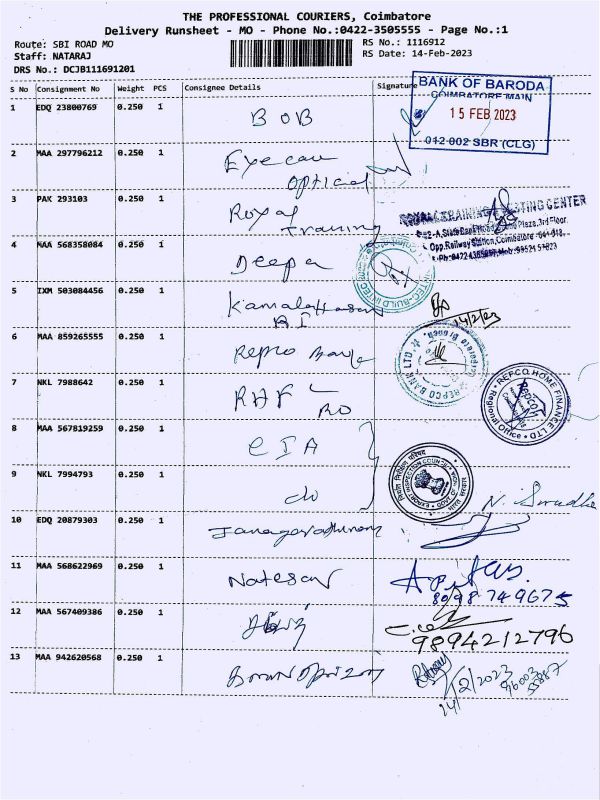 THE PROFESSIONAL COURIERS, Coimbatore
Delivery Runsheet - MO - Phone No.:0422-3505555 - Page No.:1
Route: SBI ROAD MO
RS No.: 1116912
Staff: NATARAJ
RS Date: 14-Feb-2023
DRS No.: DCJB111691201
S No Consignment No Weight PCS Consignee Details Signature
1 EDQ 23800769 0.250 1 BOB
BANK OF BARODA
COIMBATORE MAIN
15 FEB 2023
012 002 SBR (CLG)
2 MAA 297796212 0.250 1 Eyecare
Optical
3 PAK 293103 0.250 1 Royal
Training
ROYAL TRAINING & TESTING CENTER
Opp.Railway Station, Coimbatore - 641 018.
4 MAA 568358084 0.250 1 Deepa
5 IXM 503084456 0.250 1 Kamalahasan
14/2/23
6 MAA 859265555 0.250 1 Repco Bank
REPCO BANK LTD.
7 NKL 7988642 0.250 1 RHF
RO
REPCO HOME FINANCE LTD
Regional Office
8 MAA 567819259 0.250 1 EIA
निर्यात निरीक्षण परिषद
EXPORT INSPECTION COUNCIL
9 NKL 7994793 0.250 1 do
10 EDQ 20879303 0.250 1
11 MAA 568622969 0.250 1 Natesan
8098749675
12 MAA 567409386 0.250 1
9894212796
13 MAA 942620568 0.250 1
14/2/2023